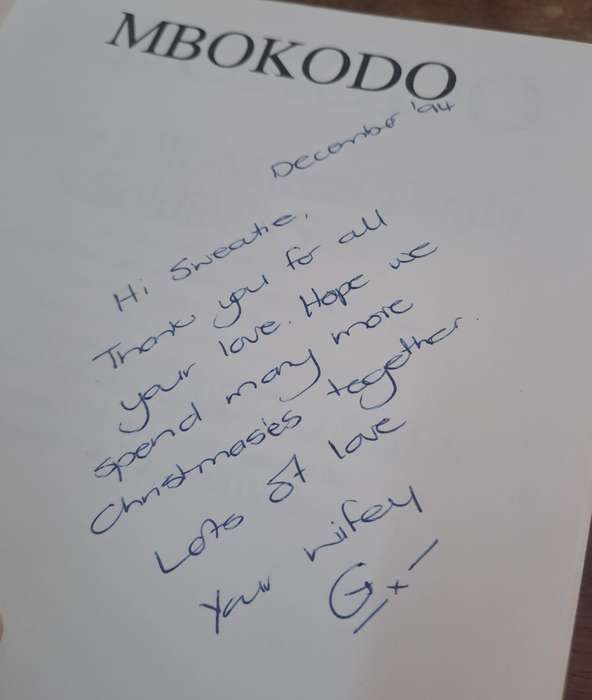 MBOKODO
December '94
Hi Sweatie,
Thank you for all
your love. Hope we
spend many more
Christmases together.
Lots of love
Your wifey
G x